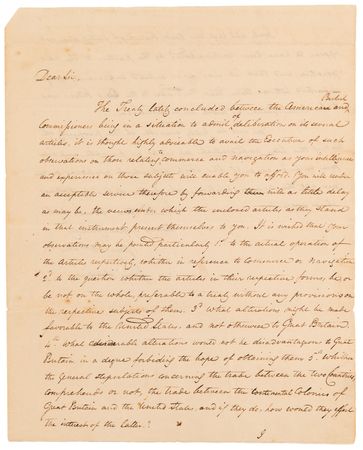 Dear Sir,
British
The Treaty lately concluded between the American and
Commissioners being in a situation to admit of deliberation on its several
articles, it is thought highly adviseable to avail the Executive of such
observations on those relating commerce and navigation as your intelligence
and experience on those subjects will enable you to afford. You will render
an acceptable service therefore by forwarding them with as little delay
as may be, the views under which the inclosed articles as they stand
in that instrument present themselves to you. It is wished that your
observations may be pointed particularly 1st to the actual operation of
the articles respectively, whether in reference to commerce or Navigation
2d to the question whether the articles in their respective forms, be or
be not on the whole, preferable to a treaty without any provisions on
the respective subjects of them. 3d what alterations might be made
favorable to the United States, and not otherwise to Great Britain
4th what desirable alterations would not be disadvantageous to Great
Britain in a degree forbidding the hope of obtaining them 5. Whether
the general stipulations concerning the trade between the two countries
comprehends or not, the trade between the continental Colonies of
Great Britain and the United States, and if they do, how would they affect
the interest of the latter?
I